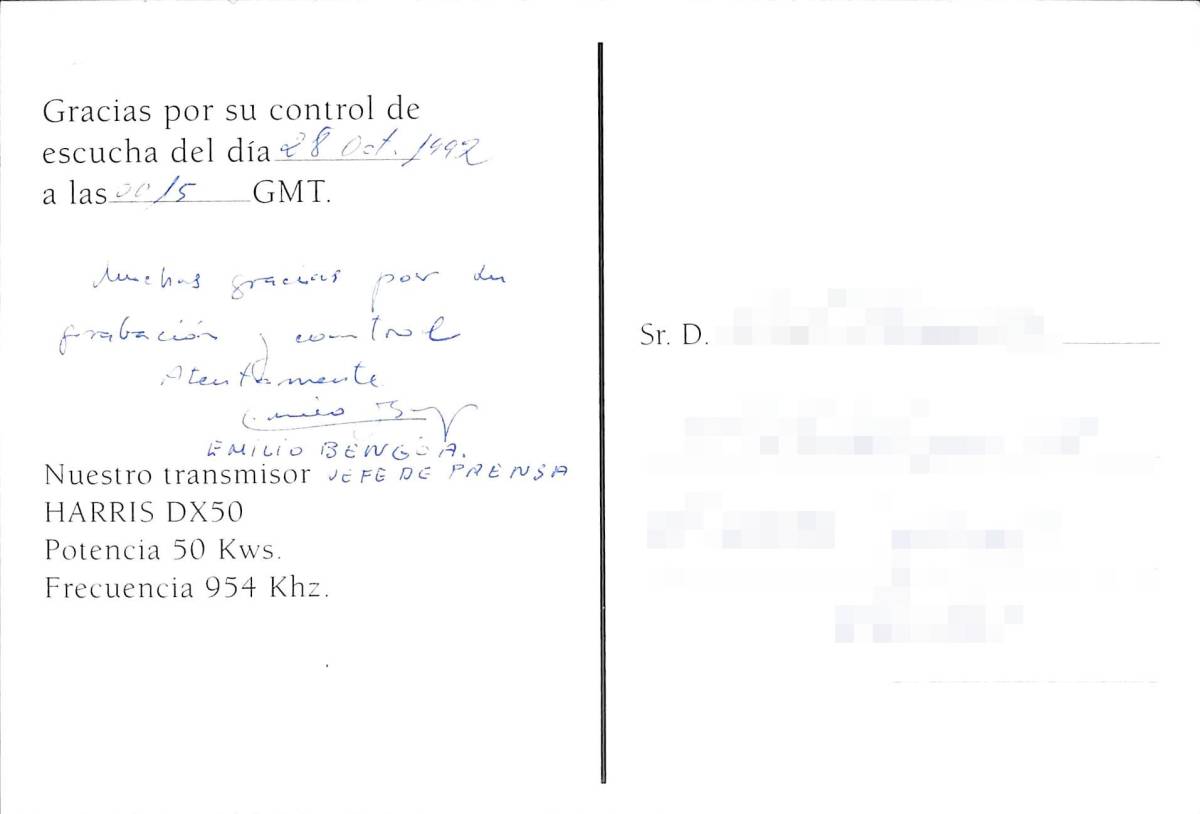 Gracias por su control de
escucha del día 28 Oct. 1992
a las 0015 GMT.
Muchas gracias por su
grabación y control
Atentamente
EMILIO BENGOA.
Nuestro transmisor JEFE DE PRENSA
HARRIS DX50
Potencia 50 Kws.
Frecuencia 954 Khz.
Sr. D.